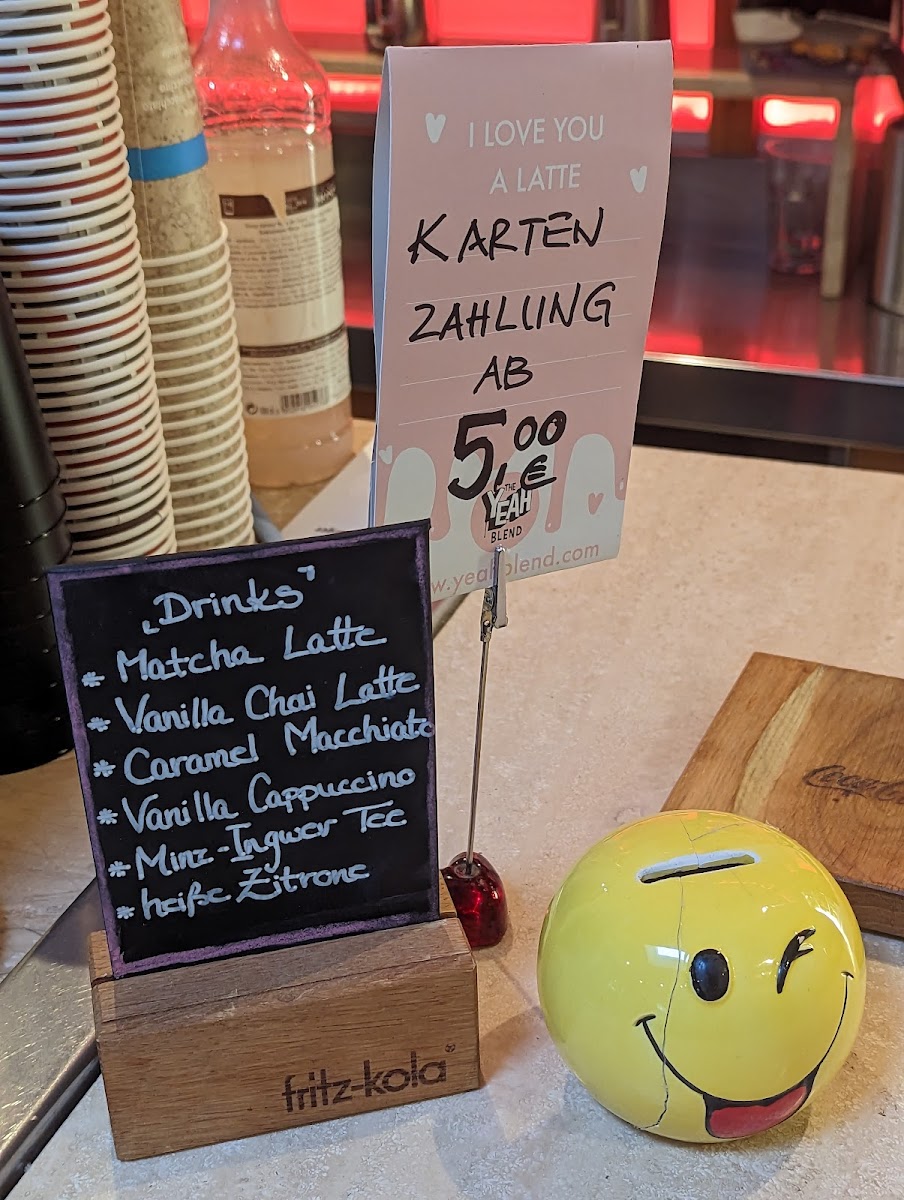 I LOVE YOU
A LATTE
KARTEN
ZAHLUNG
AB
5,00 €
THE
YEAH
BLEND
„Drinks"
* Matcha Latte
* Vanilla Chai Latte
* Caramel Macchiato
* Vanilla Cappuccino
* Minz-Ingwer Tee
* heiße Zitrone
fritz-kola